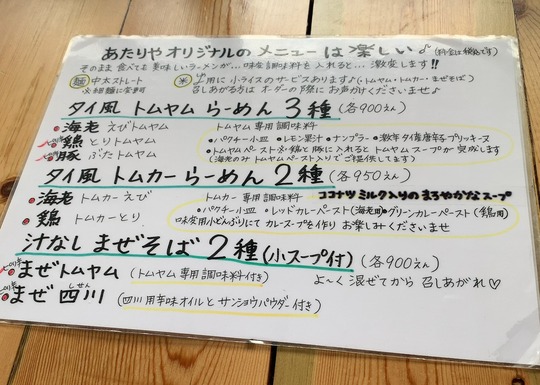 あたりや オリジナルの メニューは 楽しい♪ (料金は税込です)
そのまま 食べても 美味しいラーメンが…味変調味料を入れると… 激変します!!
麺 中太ストレート 米 〆用に 小ライスのサービスあります♪(・トムヤム・トムカー・まぜそば)
※細麺に変更可 召しあがる方は オーダーの際に お声がけくださいませ♪
タイ風 トムヤム らーめん 3種 (各900えん)
海老 えびトムヤム トムヤム専用調味料
鶏 とりトムヤム ・パクチー小皿 ・レモン果汁 ・ナンプラー ・激辛タイ青唐辛子プリッキーヌ
豚 ぶたトムヤム ・トムヤムペースト
(海老のみ トムヤムペースト入りでご提供してます)
タイ風 トムカー らーめん 2種 (各950えん)
海老 トムカーえび トムカー専用調味料 ココナツミルク入りの まろやかなスープ
鶏 トムカーとり ・パクチー小皿 ・レッドカレーペースト(海老用)・グリーンカレーペースト(鶏用)
味変用小どんぶりにて カレースープを作り お楽しみくださいませ
汁なし まぜそば 2種 (小スープ付) (各900えん)
まぜトムヤム (トムヤム専用調味料付き) よ〜く 混ぜてから 召しあがれ♡
まぜ 四川 (四川用辛味オイルと サンショウパウダー付き)
しせん